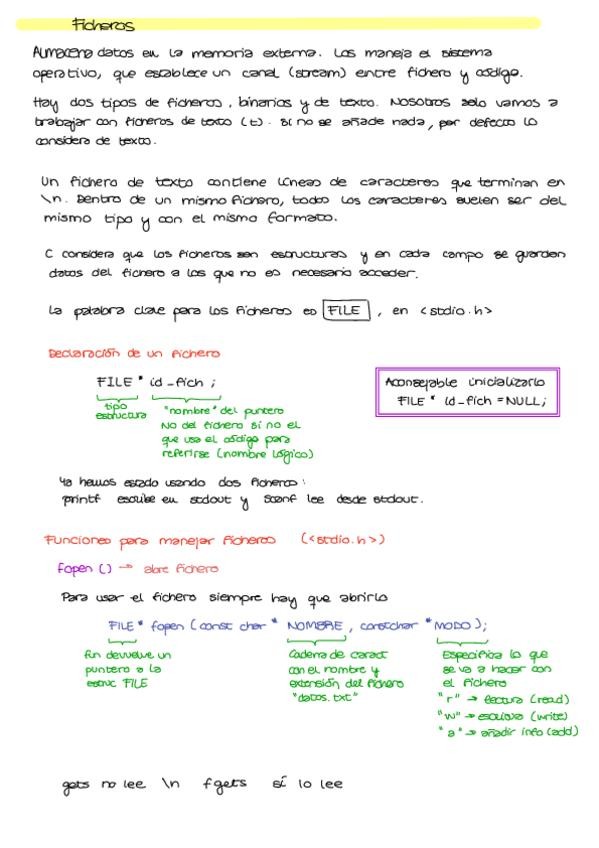 Ficheros
Almacena datos en la memoria externa. Los maneja el sistema
operativo, que establece un canal (stream) entre fichero y código.
Hay dos tipos de ficheros, binarios y de texto. Nosotros solo vamos a
trabajar con ficheros de texto (t). Si no se añade nada, por defecto lo
considera de texto.
Un fichero de texto contiene líneas de caracteres que terminan en
\n. Dentro de un mismo fichero, todos los caracteres suelen ser del
mismo tipo y con el mismo formato.
C considera que los ficheros son estructuras y en cada campo se guardan
datos del fichero a los que no es necesario acceder.
La palabra clave para los ficheros es FILE, en <stdio.h>
Declaración de un fichero
FILE * id_fich ;
Aconsejable inicializarlo
FILE * id_fich = NULL;
tipo
estructura
"nombre" del puntero
No del fichero sí no el
que usa el código para
referirse (nombre lógico)
Ya hemos estado usando dos ficheros:
printf escribe en stdout y scanf lee desde stdout.
Funciones para manejar ficheros (<stdio.h>)
fopen () → abre fichero
Para usar el fichero siempre hay que abrirlo
FILE * fopen (const char * NOMBRE, constchar *MODO);
fun devuelve un
puntero a la
estruc FILE
Cadena de caract
con el nombre y
extensión del fichero
"datos.txt"
Especifica lo que
se va a hacer con
el fichero
"r" → lectura (read)
"w" → escritura (write)
"a" → añadir info (add)
gets no lee \n fgets sí lo lee